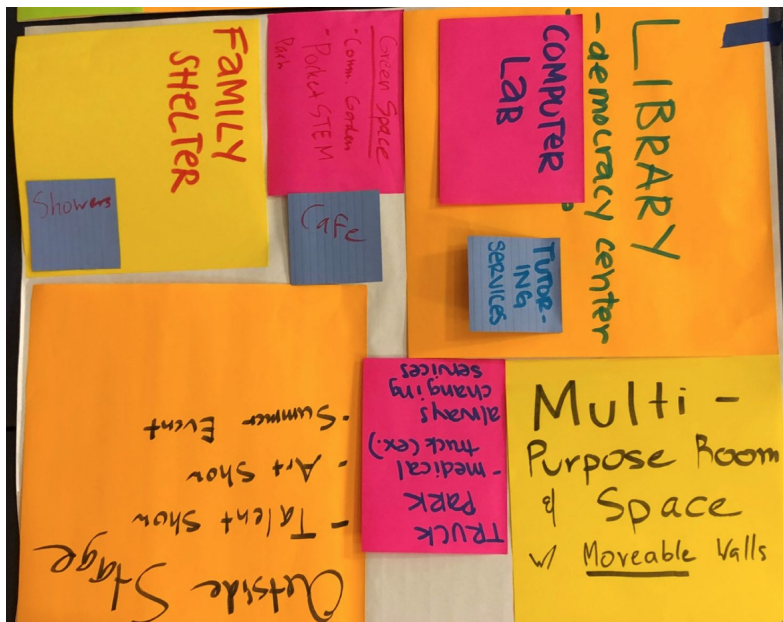 FAMILY
SHELTER
Showers
Green Space
· Comm. Garden
- Pocket STEM
Park
Cafe
LIBRARY
- democracy center
COMPUTER
LAB
TUTOR-
ING
SERVICES
Outside Stage
- Talent Show
- Art Show
- Summer Event
TRUCK
PARK
- medical
truck (ex.)
always
changing
services
Multi -
Purpose Room
& Space
w/ Moveable Walls